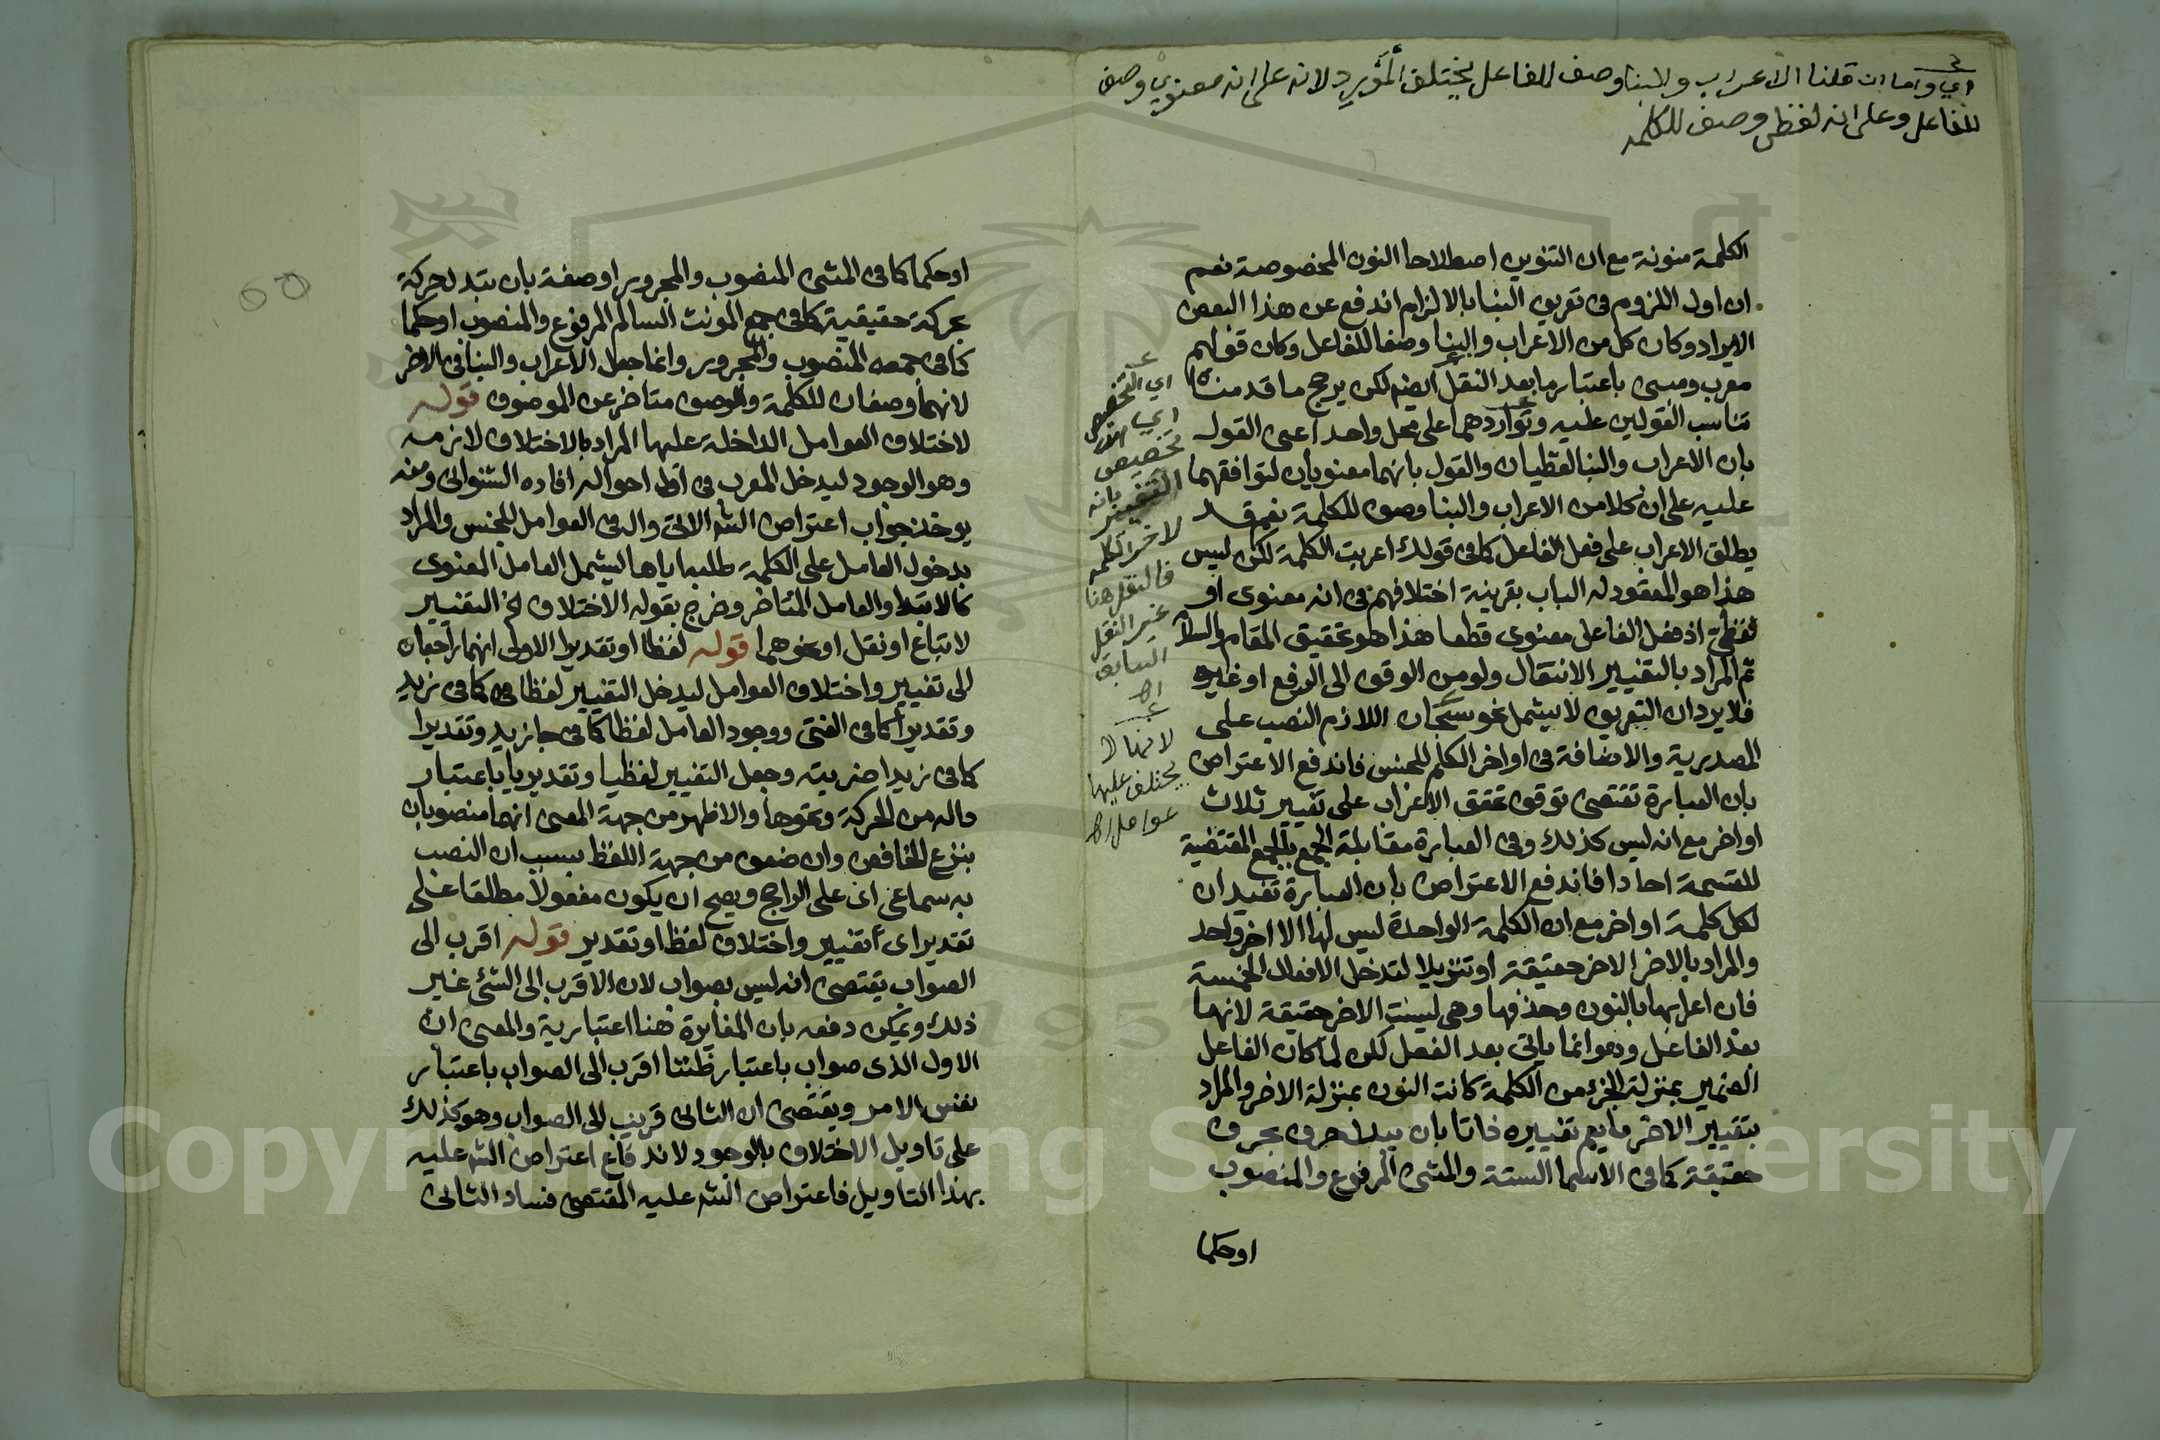 اي واما ان قلنا الاعراب والبنا وصف للفاعل يختلف المورد لانه على انه معنوي وصف
للفاعل وعلى انه لفظي وصف للكلمه
الكلمة منونة مع ان التنوين اصطلاحا النون المخصوصة نعم
ان اول اللزوم في تعريف البنا بالالزام اندفع عن هذا البعض
الايراد وكان كل من الاعراب والبنا وصفا للفاعل وكان قولهم
معرب ومبنى باعتبار ما بعد النقل ايضا لكن يرجح ما قدمناه
تناسب القولين عليه وتواردهما على محل واحد اعنى القول
بان الاعراب والبنا لفظيان والقول بانهما معنويان لتوافقهما
عليه على ان كلا من الاعراب والبنا وصف للكلمة نعم قد
يطلق الاعراب على فعل الفاعل كما في قولك اعربت الكلمة لكن ليس
هذا هو المعقود له الباب بقرينة اختلافهم في انه معنوى او
لفظي اذ فعل الفاعل معنوى قطعا هذا هو تحقيق المقام والسلام
ثم المراد بالتغيير الانتقال ولو من الوقف الى الرفع او غيره
فلا يرد ان التعريف لا يشمل نحو سبحان اللازم النصب على
المصدرية والاضافة في اواخر الكلم للجنس فاندفع الاعتراض
بان العبارة تقتضى توقف تحقق الاعراب على تغيير ثلاث
اواخر مع انه ليس كذلك وفي العبارة مقابلة الجمع بالجمع المقتضية
للقسمة احادا فاندفع الاعتراض بان العبارة تفيد ان
لكل كلمة اواخر مع ان الكلمة الواحدة ليس لها الا اخر واحد
والمراد بالاخر الاخر حقيقة او تنزيلا لتدخل الافعال الخمسة
فان اعرابها بالنون وحذفها وهي ليست الاخر حقيقة لانها
بعد الفاعل وهو انما ياتى بعد الفعل لكن لما كان الفاعل
الضمير بمنزلة الجزء من الكلمة كانت النون بمنزلة الاخر والمراد
بتغيير الاخر ما يعم تغييره ذاتا بان يبدل حرف بحرف
حقيقة كما في الاسما الستة والمثنى المرفوع والمنصوب
او حكما
اي التخصيص
اي
تخصيص
التغيير بانه
لاخر الكلمه
فالنقل هنا
غير النقل
السابق
اه
لانها لا
يختلف عليها
عوامل اه
او حكما كما في المثنى المنصوب والمجرور او صفة بان تبدل حركة
بحركة حقيقية كما في جمع المونث السالم المرفوع والمنصوب او حكما
كما في جمعه المنصوب والمجرور وانما جعل الاعراب والبنا في الاخر
لانهما وصفان للكلمة والوصف متاخر عن الموصوف قوله
لاختلاف العوامل الداخلة عليها المراد بالاختلاف لازمه
وهو الوجود ليدخل المعرب في اول احواله افاده الشنوانى ومنه
يوخذ جواب اعتراض الش الاتى وال في العوامل للجنس والمراد
بدخول العامل على الكلمة طلبه اياها ليشمل العامل المعنوى
كالابتدا والعامل المتاخر وخرج بقوله الاختلاف الخ التغيير
لاتباع او نقل او نحوهما قوله لفظا او تقديرا الاولى انهما راجعان
الى تغيير واختلاف العوامل ليدخل التغيير لفظا في كما في زيد
وتقديرا كما في الفتى ووجود العامل لفظا كما في جا زيد وتقديرا
كما في زيدا ضربته وجعل التغيير لفظيا وتقديريا باعتبار
داله من الحركة ونحوها والاظهر من جهة المعنى انهما منصوبان
بنزع الخافض وان ضعف من جهة اللفظ بسبب ان النصب
به سماعي اى على الراجح ويصح ان يكون مفعولا مطلقا على
تقدير اى تغيير واختلاف لفظ او تقدير قوله اقرب الى
الصواب يقتضى انه ليس بصواب لان الاقرب الى الشئ غير
ذلك ويمكن دفعه بان المغايرة هنا اعتبارية والمعنى ان
الاول الذى صواب باعتبار ظننا اقرب الى الصواب باعتبار
نفس الامر ويقتضى ان الثانى قريب الى الصواب وهو كذلك
على تاويل الاختلاف بالوجود لاندفاع اعتراض الش عليه
بهذا التاويل فاعتراض الش عليه المقتضى فساد الثانى
Copyright © King Saud University
195